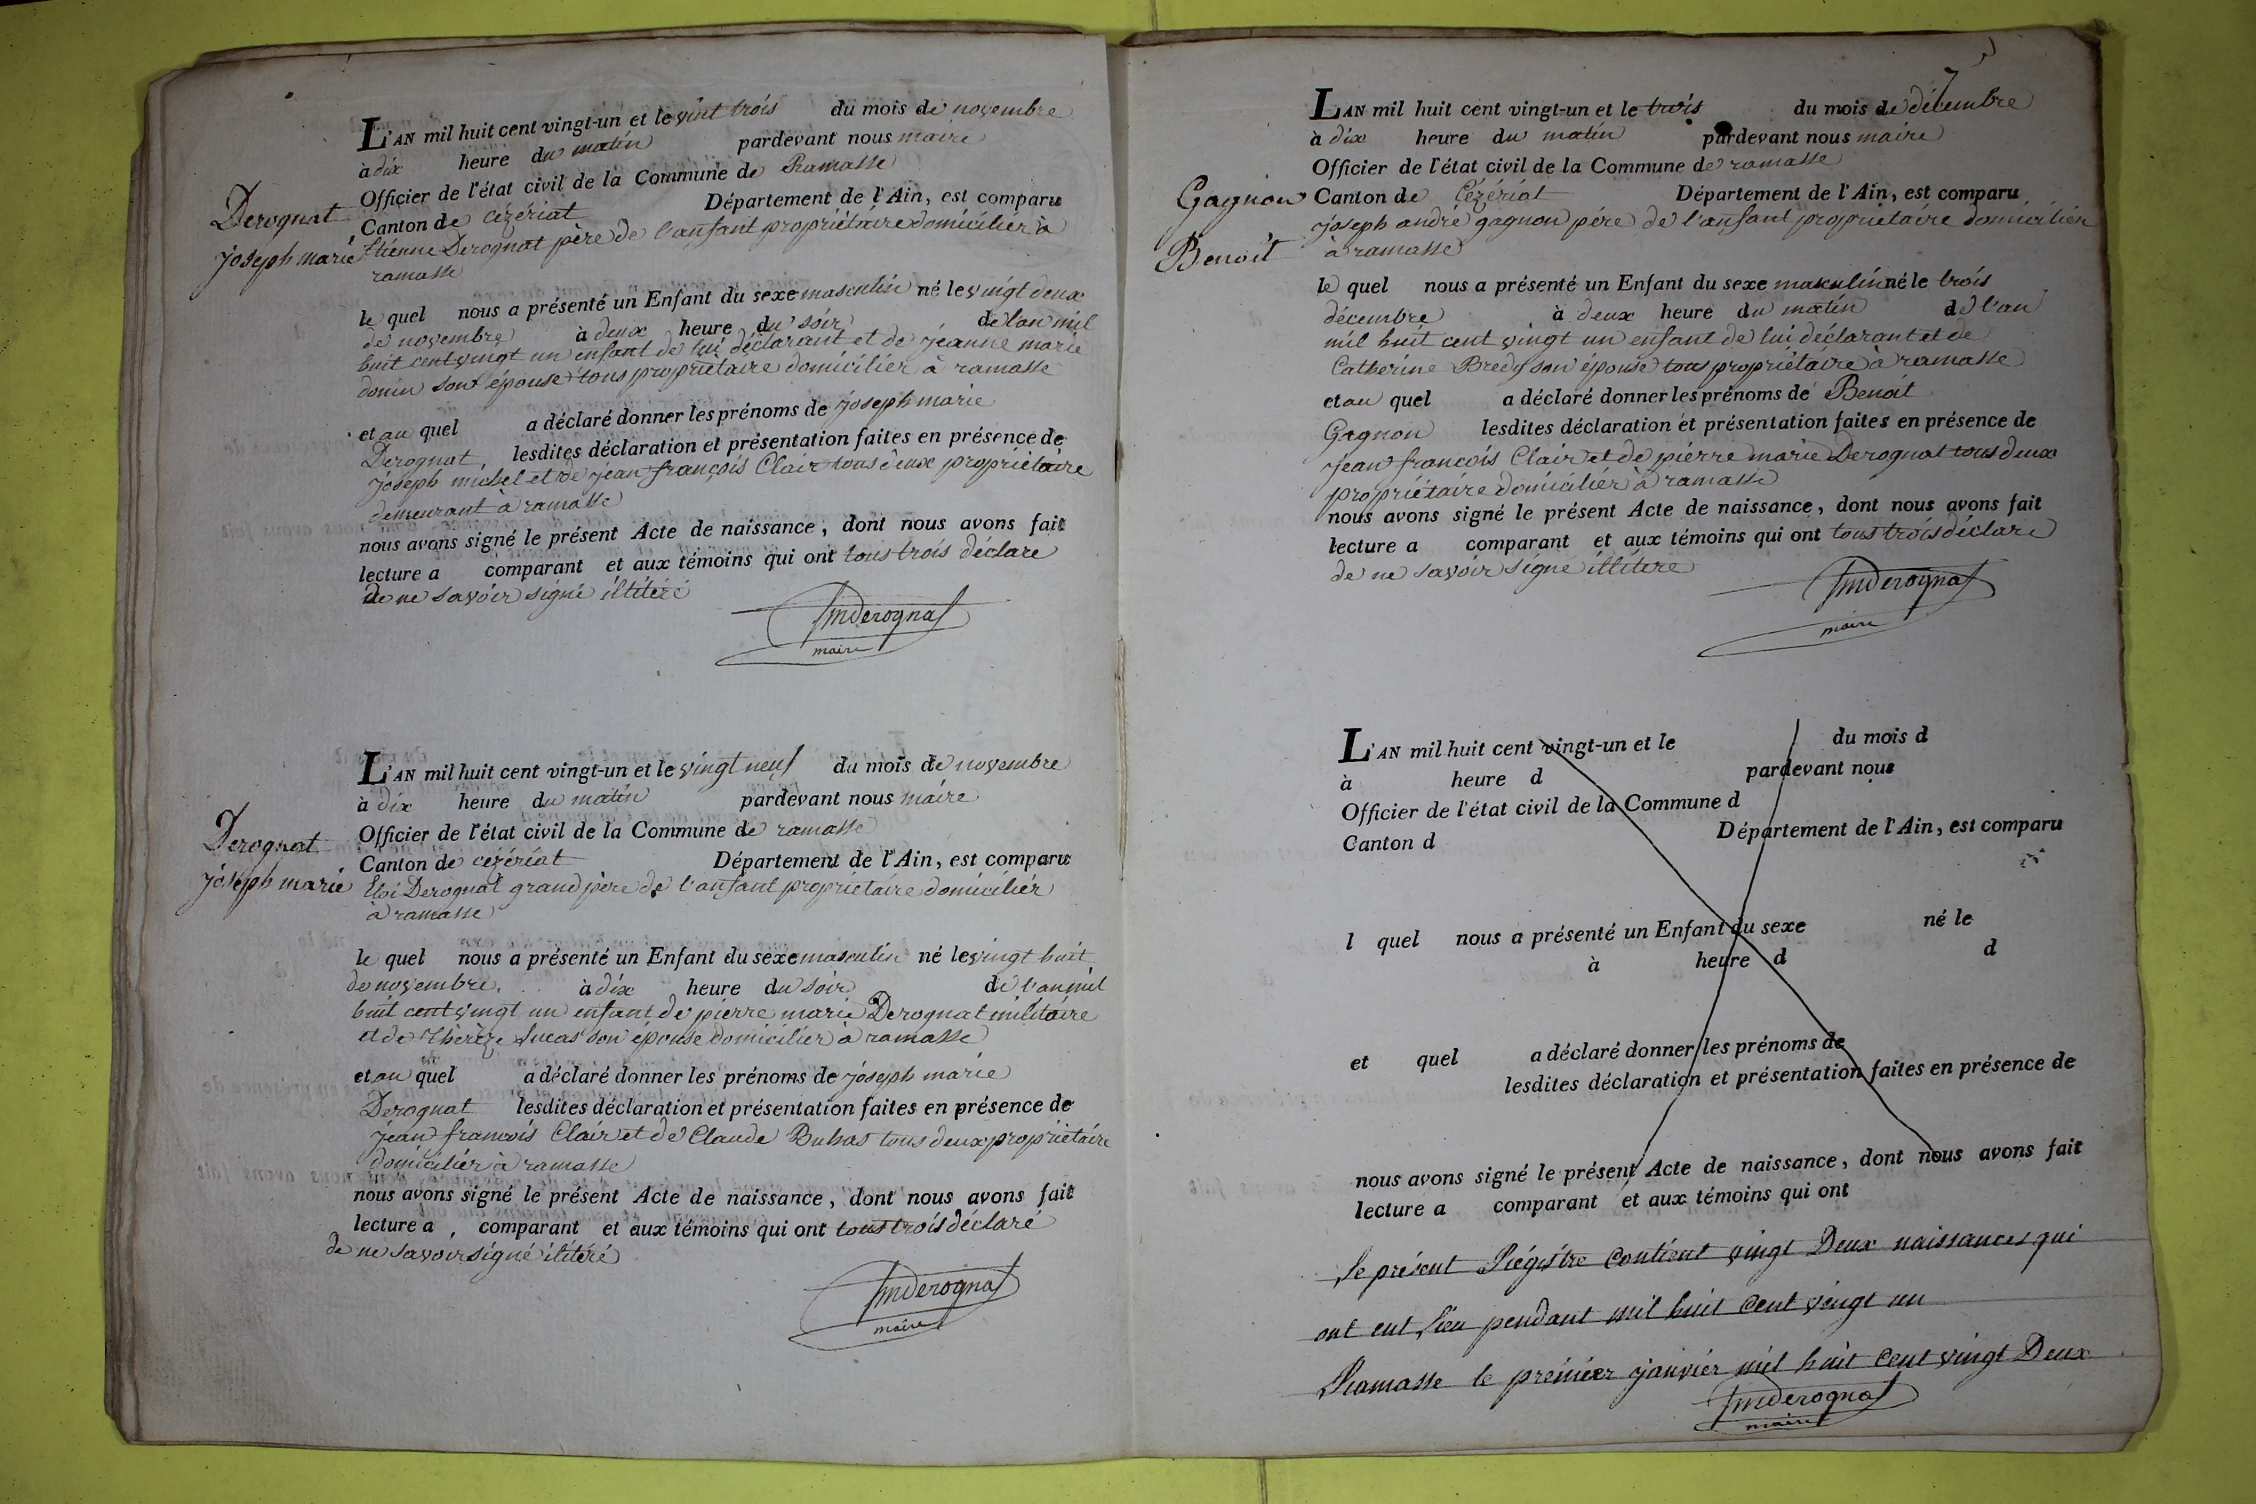 L'AN mil huit cent vingt-un et le vint trois du mois de novembre
à dix heure du matin pardevant nous maire
Officier de l'état civil de la Commune de Ramasse
Canton de cézériat Département de l'Ain, est comparu
Derognat
joseph marie
Etienne Derognat père de l'anfant propriétaire domicilier à
ramasse
le quel nous a présenté un Enfant du sexe masculin né le vingt deux
de novembre à deux heure du soir de l'an mil
huit cent vingt un enfant de lui déclarant et de jeanne marie
donin son épouse tous propriétaire domicilier à ramasse
et au quel a déclaré donner les prénoms de joseph marie
Derognat, lesdites déclaration et présentation faites en présence de
joseph michel et de jean françois Clair tous deux propriétaire
demeurant à ramasse
nous avons signé le présent Acte de naissance, dont nous avons fait
lecture a comparant et aux témoins qui ont tous trois déclare
de ne savoir signé ilitéré
maire
L'AN mil huit cent vingt-un et le vingt neuf du mois de novembre
à dix heure du matin pardevant nous maire
Officier de l'état civil de la Commune de ramasse
Canton de cézériat Département de l'Ain, est comparu
Derognat
joseph marie
Eloi Derognat grand père de l'anfant propriétaire domicilier
à ramasse
le quel nous a présenté un Enfant du sexe masculin né le vingt huit
de novembre, à dix heure du soir de l'an mil
huit cent vingt un enfant de pierre marie Derognat militaire
et de Thérèze lucas son épouse domicilier à ramasse
et au quel a déclaré donner les prénoms de joseph marie
Derognat lesdites déclaration et présentation faites en présence de
jean francois Clair et de Claude tous deux propriétaire
domicilier à ramasse
nous avons signé le présent Acte de naissance, dont nous avons fait
lecture a comparant et aux témoins qui ont tous trois déclaré
de ne savoir signé ilitéré
maire
7
L'AN mil huit cent vingt-un et le trois du mois de décembre
à dix heure du matin pardevant nous maire
Officier de l'état civil de la Commune de ramasse
Canton de Cézériat Département de l'Ain, est comparu
Gagnon
Benoit
joseph andré gagnon pére de l'anfant propriétaire domicilier
à ramasse
le quel nous a présenté un Enfant du sexe masculin né le trois
décembre à deux heure du matin de l'an
mil huit cent vingt un enfant de lui déclarant et de
Catherine son épouse tous propriétaire à ramasse
et au quel a déclaré donner les prénoms de Benoit
Gagnon lesdites déclaration et présentation faites en présence de
jean francois Clair et de piérre marie Derognat tous deux
propriétaire domicilier à ramasse
nous avons signé le présent Acte de naissance, dont nous avons fait
lecture a comparant et aux témoins qui ont tous trois déclare
de ne savoir signé illitere
maire
L'AN mil huit cent vingt-un et le du mois d
à heure d pardevant nous
Officier de l'état civil de la Commune d
Canton d Département de l'Ain, est comparu
l quel nous a présenté un Enfant du sexe né le
à heure d d
et quel a déclaré donner les prénoms de
lesdites déclaration et présentation faites en présence de
nous avons signé le présent Acte de naissance, dont nous avons fait
lecture a comparant et aux témoins qui ont
le présent Régistre contient vingt Deux naissances qui
ont eut lieu pendant mil huit cent vingt un
Ramasse le prémier janvier mil huit cent vingt Deux
maire